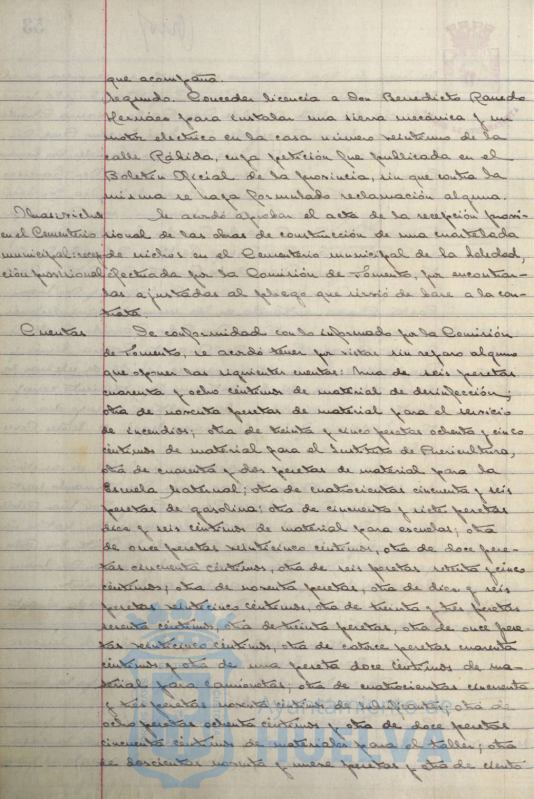 que acompaña.
Segundo. Conceder licencia a Don Benedicto
para instalar una sierra mecánica y un
motor eléctrico en la casa número veintiuno de la
calle Rábida, cuya petición fue publicada en el
Boletín Oficial de la Provincia, sin que contra la
misma se haya formulado reclamación alguna.
Nuevos nichos
en el Cementerio
municipal: recep-
ción provisional
Se acordó aprobar el acta de la recepción provi-
sional de las obras de construcción de una cuartelada
de nichos en el Cementerio municipal de la Soledad,
efectuada por la Comisión de Fomento, por encontrar-
las ajustadas al pliego que sirvió de base a la con-
trata.
Cuentas
De conformidad con lo informado por la Comisión
de Fomento, se acordó tener por vistas sin reparo alguno
que oponer las siguientes cuentas: Una de seis pesetas
cuarenta y ocho céntimos de material de desinfección;
otra de noventa pesetas de material para el servicio
de incendios; otra de treinta y cinco pesetas ochenta y cinco
céntimos de material para el Instituto de Puericultura,
otra de cuarenta y dos pesetas de material para la
Escuela Maternal; otra de cuatrocientas cincuenta y seis
pesetas de gasolina; otra de cincuenta y siete pesetas
diez y seis céntimos de material para escuelas; otra
de once pesetas veinticinco céntimos, otra de doce pese-
tas cincuenta céntimos, otra de seis pesetas setenta y cinco
céntimos; otra de noventa pesetas, otra de diez y seis
pesetas veinticinco céntimos, otra de treinta y tres pesetas
sesenta céntimos, otra de treinta pesetas, otra de once pese-
tas veinticinco céntimos, otra de catorce pesetas cuarenta
céntimos y otra de una peseta doce céntimos de ma-
terial para camionetas; otra de cuatrocientas cincuenta
y tres pesetas noventa céntimos de lubrificantes; otra de
ocho pesetas ochenta céntimos y otra de doce pesetas
cincuenta céntimos de materiales para el taller; otra
de doscientas noventa y nueve pesetas y otra de ciento
Ayuntamiento de
HUELVA